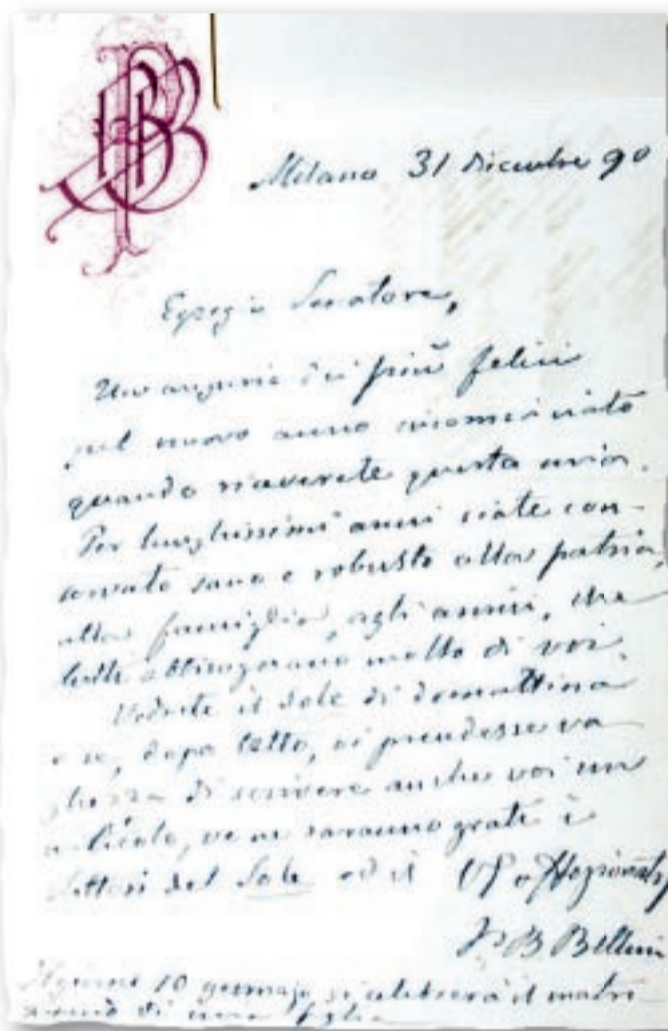 Milano 31 Dicembre 90
Egregio Senatore,
Un augurio dei più felici
pel nuovo anno incominciato
quando riceverete questa mia.
Per lunghissimi anni siate con-
servato sano e robusto alla patria,
alla famiglia, agli amici, che
tutti abbisognano molto di voi.
Vedrete il Sole di domattina
e se, dopo letto, vi prendesse va
ghezza di scrivere anche voi un
articolo, ve ne saranno grati i
lettori del Sole ed il V/o Affezionato
B Bellini
10 gennajo si celebrerà il matri-
monio di mia figlia